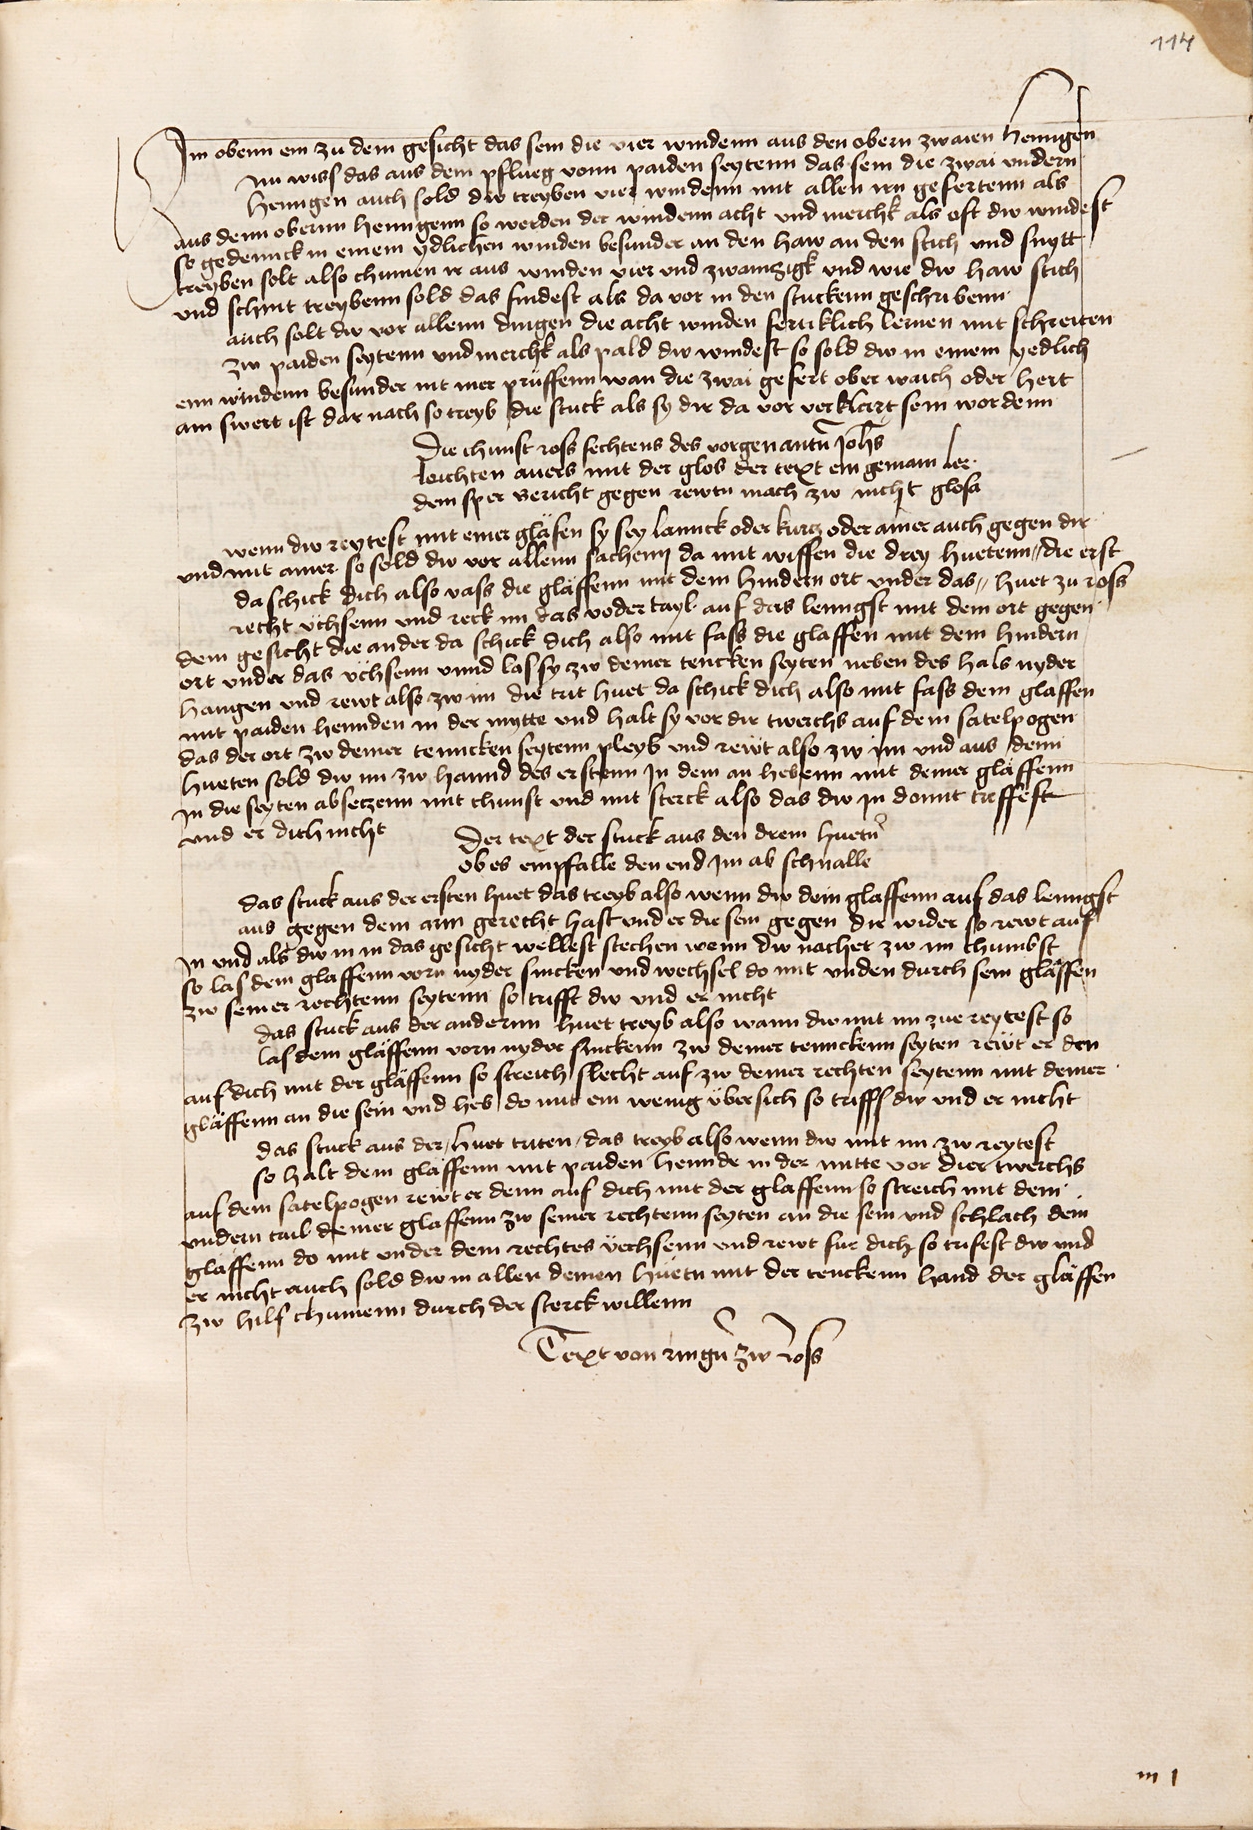 114
Im obenn ein zu dem gesicht das sein die vier windenn aus den obern zwaien henngen
Nu wiss das aus dem pflueg vonn paiden seytenn das sein die zwai vndern
henngen auch sold dw treyben vier windenn mit allen irn gefertenn als
aus denn obernn henngenn so werden der windenn acht vnd merchk als oft dw windest
so gedennck in einem ydlichen winden besunder an den haw an den stich vnd snytt
treyben solt also chumen ir aus winden vier vnd zwainzigk vnd wie dw haw stich
vnd schnit treybenn sold das findest als da vor in den stuckenn geschribenn
auch solt dw vor allenn dingen die acht winden fertiklich lernen mit schreiten
zw paiden seytenn vnd merchk als pald dw windest so sold dw in einem yedlich
enn windenn besunder nit mer prüffenn wan die zwai gefert ober waich oder hert
am swert ist dar nach so treyb die stuck als sy dir da vor verklert sein wordenn
Die chunst ross fechtens des vorgenantn Johns
leichten auers mit der glos der text ein gemain ler
dein sper bericht gegen rewtn mach zw nicht glosa
wenn dw reytest mit einer gläfen sy sey lannck oder kurcz oder ainer auch gegen dir
vnd mit ainer so sold dw vor allenn sachenn da mit wissen die drey huetenn die erst
da schick dich also vass die gläffenn mit dem hindern ort vnder das huet zu ross
recht vchsenn vnd reck im das voder tayl auf das lenngst mit dem ort gegen
dem gesicht die ander da schick dich also mit fass die glaffen mit dem hindern
ort vnder das üchsenn vnnd las sy zw deiner tencken seyten neben des hals nyder
hangen vnd rewt also zw im die trit huet da schick dich also mit fass dein glaffen
mit paiden hennden in der mytte vnd halt sy vor dir twerchs auf dem satelpogen
das der ort zw deiner tenncken seytenn pleyb vnd rewt also zw im vnd aus denn
hueten sold dw im zw hannd des erstenn In dem an hebenn mit deiner gläffenn
In die seyten abseczenn mit chunst vnd mit sterck also das dw In domit treffest
vnd er dich nicht
Der text der stuck aus den drein huetn
ob es empfalle den end Im ab schnalle
das stuck aus der ersten huet das treyb also wenn dw dein glaffenn auf das lenngst
aus gegen dem arm gerecht hast vnd er die sein gegen dir wider so rewt auf
In vnd als dw in in das gesicht wellest stechen wenn dw nachet zw im chumbst
so las dein glaffenn vorn nyder sincken vnd wechsel do mit vnden durch sein gläffen
zw seiner rechtenn seytenn so trifft dw vnd er nicht
das stuck aus der andernn huet treyb also wann dw mit im zue reytest so
las dein gläffenn vorn nyder sinckenn zw deiner tennckenn seyten rewt er den
auf dich mit der gläffenn so streich slecht auf zw deiner rechten seytenn mit deiner
gläffenn an die sein vnd heb do mit ein wenig übersich so triffs dw vnd er nicht
das stuck aus der huet triten das treyb also wenn dw mit im zw reytest
so halt dein gläffenn mit paiden hennde in der mitte vor dier twerchs
auf dem satelpogen rewt er denn auf dich mit der glaffenn so streich mit dem
vndern tail deiner glaffenn zw seiner rechtenn seyten an die sein vnd schlach dein
gläffenn do mit vnder dein rechtes üechsenn vnd rewt fur dich so trifest dw vnd
er nicht auch sold dw in allen deinen huetn mit der tenckenn hand der gläffen
zw hilf chumenn durch der sterck willenn
Text von ringn zw ross
m 1